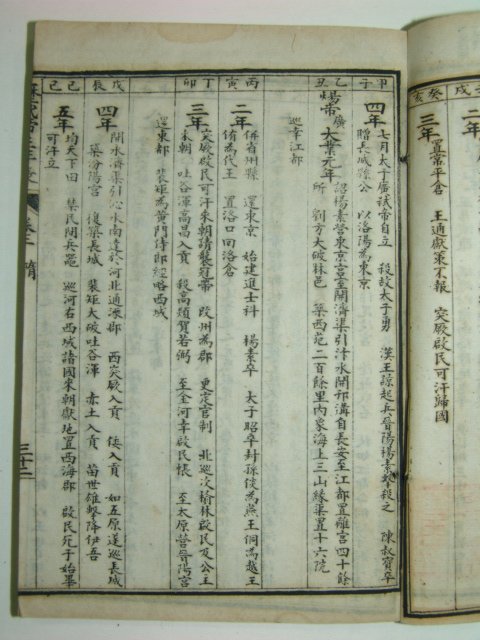 戌
癸亥
二年
三年
置常平倉 王通獻策不報 突厥啟民可汗歸國
甲子
四年
七月太子廣弑帝自立 殺故太子勇 漢王諒起兵晉陽楊素擊殺之 陳叔寶卒
贈長城縣公 以洛陽為東京
乙丑
煬帝廣 大業元年
詔楊素營東京宮室開濟渠引汴水開邗溝自長安至江都置離宮四十餘
所 劉方大破林邑 築西苑二百餘里內象海上三山緣渠置十六院
巡幸江都
丙寅
二年
併省州縣 還東京 始建進士科 楊素卒 太子昭卒封孫倓為燕王侗為越王
侑為代王 置洛口回洛倉
丁卯
三年
突厥啟民可汗來朝請襲冠帶 改州為郡 更定官制 北巡次榆林啟民及公主
來朝 吐谷渾高昌入貢 殺高熲賀若弼 至金河幸啟民帳 至太原營晉陽宮
還東都 裴矩為黃門侍郎經略西域
戊辰
四年
開永濟渠引沁水南達於河北通涿郡 西突厥入貢 倭入貢 如五原遂巡長城
築汾陽宮 復築長城 裴矩大破吐谷渾 赤土入貢 薛世雄擊降伊吾
己巳
五年
均天下田 禁民間兵器 巡河右西域諸國來朝獻地置西海郡 啟民死子始畢
可汗立
卷三 隋
三十二